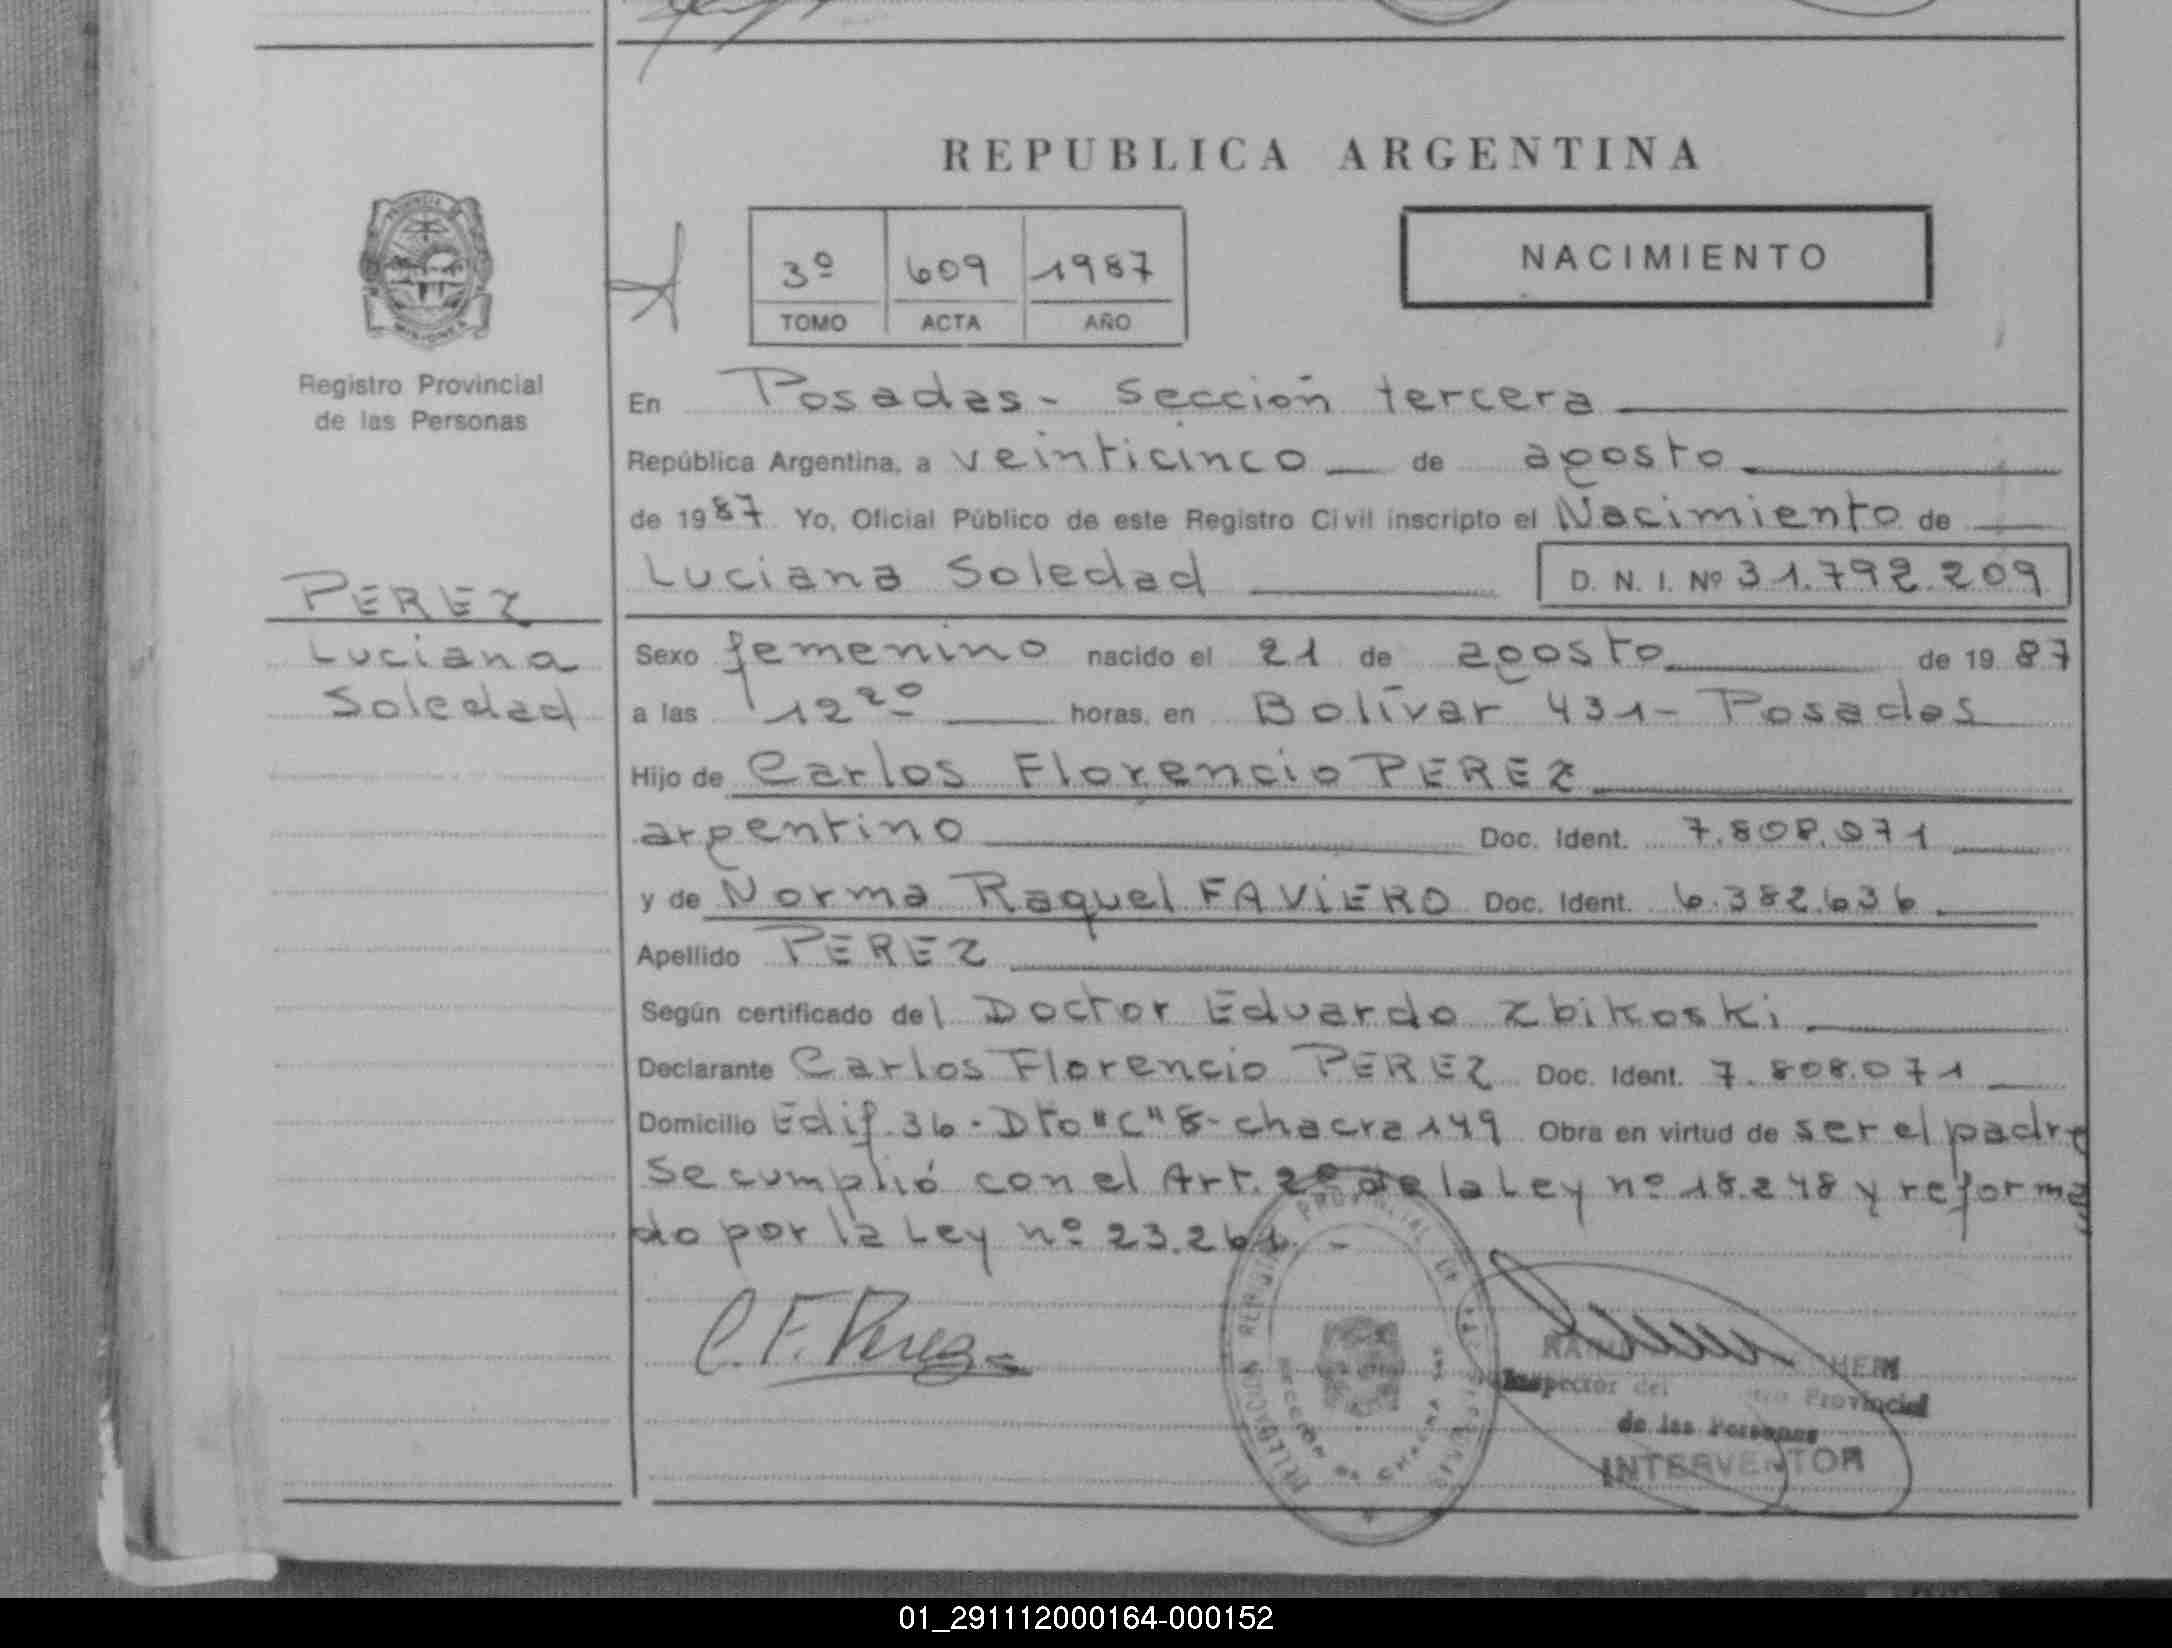 REPUBLICA ARGENTINA
PROVINCIA DE
MISIONES
Registro Provincial
de las Personas
3º 609 1987
TOMO ACTA AÑO
NACIMIENTO
En Posadas - Sección tercera
República Argentina, a veinticinco de agosto
de 1987 Yo, Oficial Público de este Registro Civil inscripto el Nacimiento de
Luciana Soledad D. N. I. Nº 31.792.209
PEREZ
Luciana
Soledad
Sexo femenino nacido el 21 de agosto de 1987
a las 12 20 horas, en Bolívar 431 - Posadas
Hijo de Carlos Florencio PEREZ
argentino Doc. Ident. 7.808.071
y de Norma Raquel FAVIERO Doc. Ident. 6.382.636
Apellido PEREZ
Según certificado del Doctor Eduardo Zbikoski
Declarante Carlos Florencio PEREZ Doc. Ident. 7.808.071
Domicilio Edif. 36 - Dto "C" 8 - chacra 149 Obra en virtud de ser el padre
Se cumplió con el Art. 2º de la Ley nº 18.248 y reforma
do por la Ley nº 23.261. -
C. F. Perez
DELEGACION REGISTRO PROVINCIAL DE LAS PERSONAS
Inspector del Provincial
de las Personas
INTERVENTOR
01_291112000164-000152